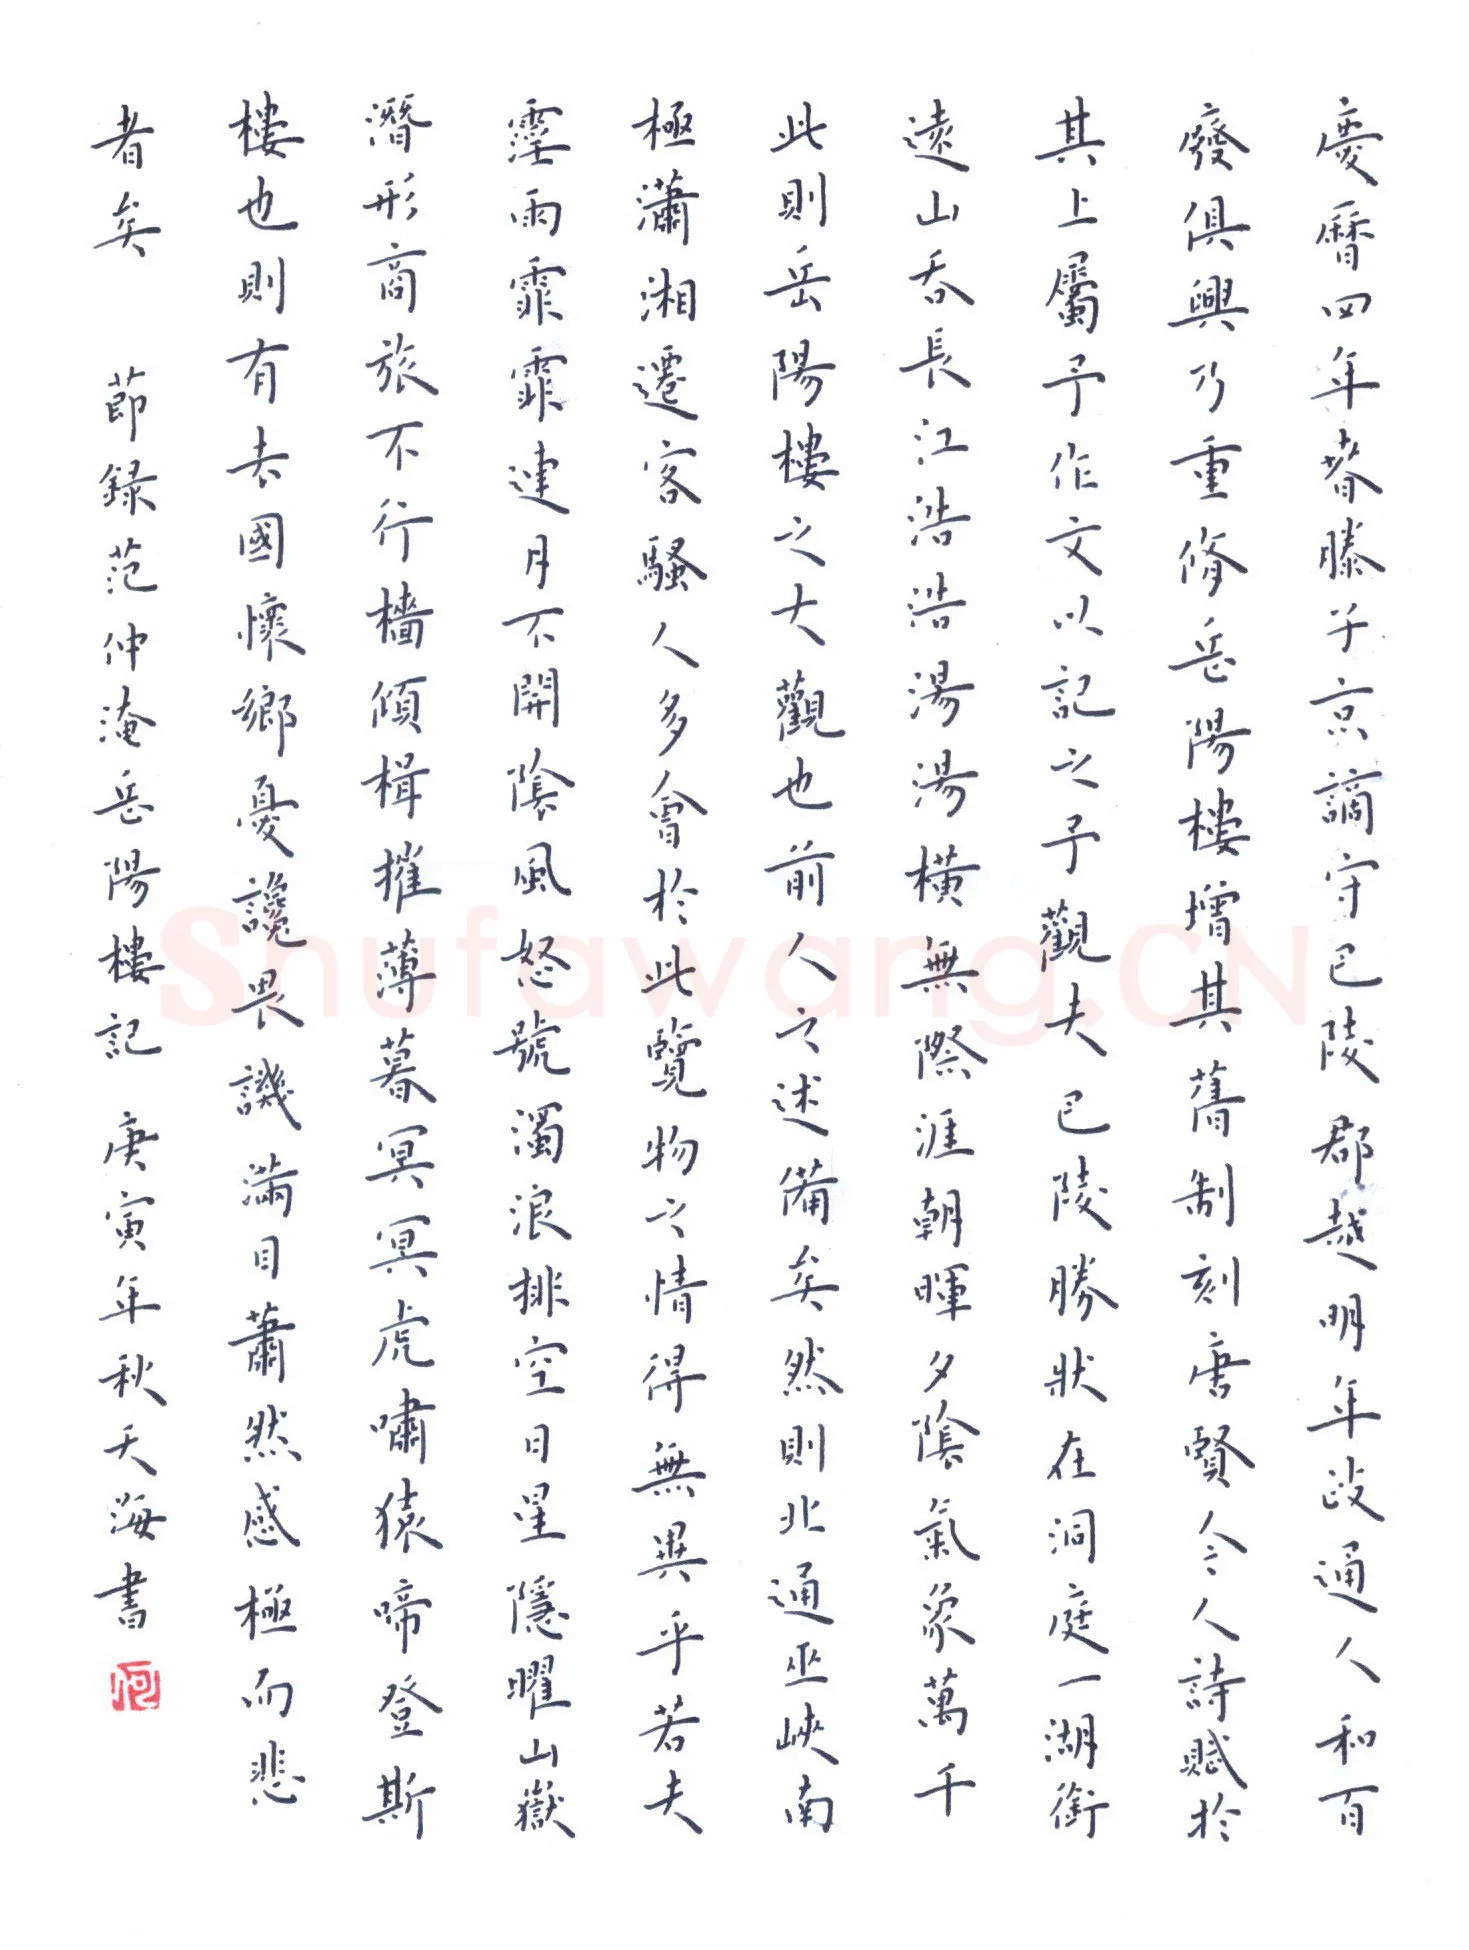 慶曆四年春滕子京謫守巴陵郡越明年政通人和百
廢俱興乃重脩岳陽樓增其舊制刻唐賢今人詩賦於
其上屬予作文以記之予觀夫巴陵勝狀在洞庭一湖銜
遠山吞長江浩浩湯湯橫無際涯朝暉夕陰氣象萬千
此則岳陽樓之大觀也前人之述備矣然則北通巫峽南
極瀟湘遷客騷人多會於此覽物之情得無異乎若夫
霪雨霏霏連月不開陰風怒號濁浪排空日星隱曜山嶽
潛形商旅不行檣傾楫摧薄暮冥冥虎嘯猿啼登斯
樓也則有去國懷鄉憂讒畏譏滿目蕭然感極而悲
者矣 節録范仲淹岳陽樓記 庚寅年秋天海書
何
Shufawang.CN